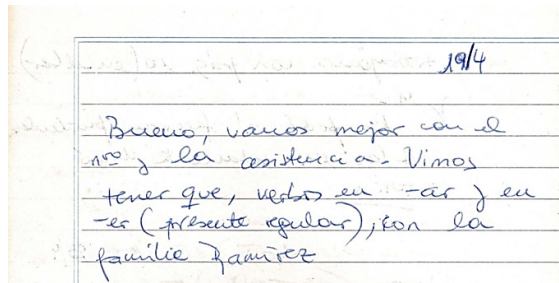 19/4
Bueno, vamos mejor con el
nro y la asistencia. Vimos
tener que, verbos en -ar y en
-er (presente regular), con la
familia Ramírez